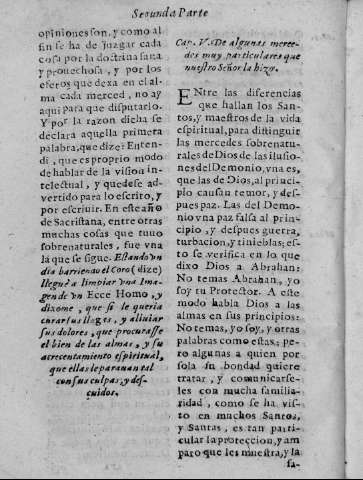 Segunda Parte
opiniones son, y como al
fin se ha de juzgar cada
cosa por la doctrina sana
y prouechosa, y por los
efetos que dexa en el al-
ma cada merced, no ay
aqui para que disputarlo.
Y por la razon dicha se
declara aquella primera
palabra, que dize: Enten-
di, que es proprio modo
de hablar de la vision in-
telectual, y quedese ad-
vertido para lo escrito, y
por escriuir. En este año
de Sacristana, entre otras
muchas cosas que tuuo
sobrenaturales, fue vna
la que se sigue. Estando vn
dia barriendo el Coro (dize)
lleguè a limpiar vna Ima-
gen de vn Ecce Homo, y
dixome, que si le queria
curar sus llagas, y aliuiar
sus dolores, que procurasse
el bien de las almas, y su
acrecentamiento espiritual,
que ellas le parauan tal
con sus culpas, y des-
cuidos.
Cap. V. De algunas merce-
des muy particulares que
nuestro Señor la hizo.
ENtre las diferencias
que hallan los San-
tos, y maestros de la vida
espiritual, para distinguir
las mercedes sobrenatu-
rales de Dios de las ilusio-
nes del Demonio, vna es,
que las de Dios, al princi-
pio causan temor, y des-
pues paz. Las del Demo-
nio vna paz falsa al prin-
cipio, y despues guerra,
turbacion, y tinieblas; es-
to se verifica en lo que
dixo Dios a Abrahan:
No temas Abrahan, yo
soy tu Protector. A este
modo habla Dios a las
almas en sus principios:
No temas, yo soy, y otras
palabras como estas; pe-
ro algunas a quien por
sola su bondad quiere
tratar, y comunicarse-
les con mucha familia-
ridad, como se ha vis-
to en muchos Santos,
y Santas, es tan parti-
cular la proteccion, y am
paro que les muestra, y la
fa-